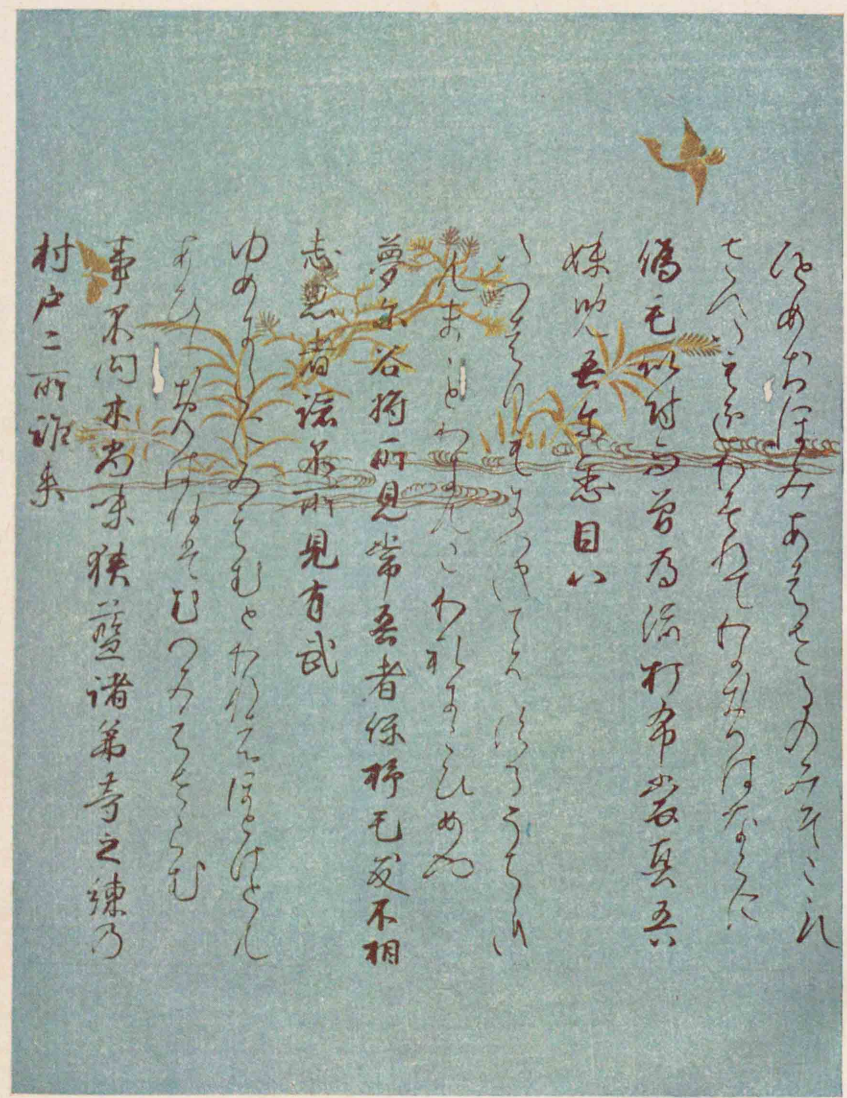 ひとめおほみあはさるのみそこゝろ
さへいもをわすれてわかおもはなくに
偽毛似付而曽為流打布裳真吾
妹兒吾尓恋目八
いつはりもにつきてそするうち
まことわきもこわれにこひめや
夢尓谷将所見常吾者保杼毛友不相
志思者諾不所見有武
ゆめにたにみえむとわれはほとけとも
あひしおもはね みえさらむ
事不問木尚味狭藍諸弟等之練乃
村戸二所詐来